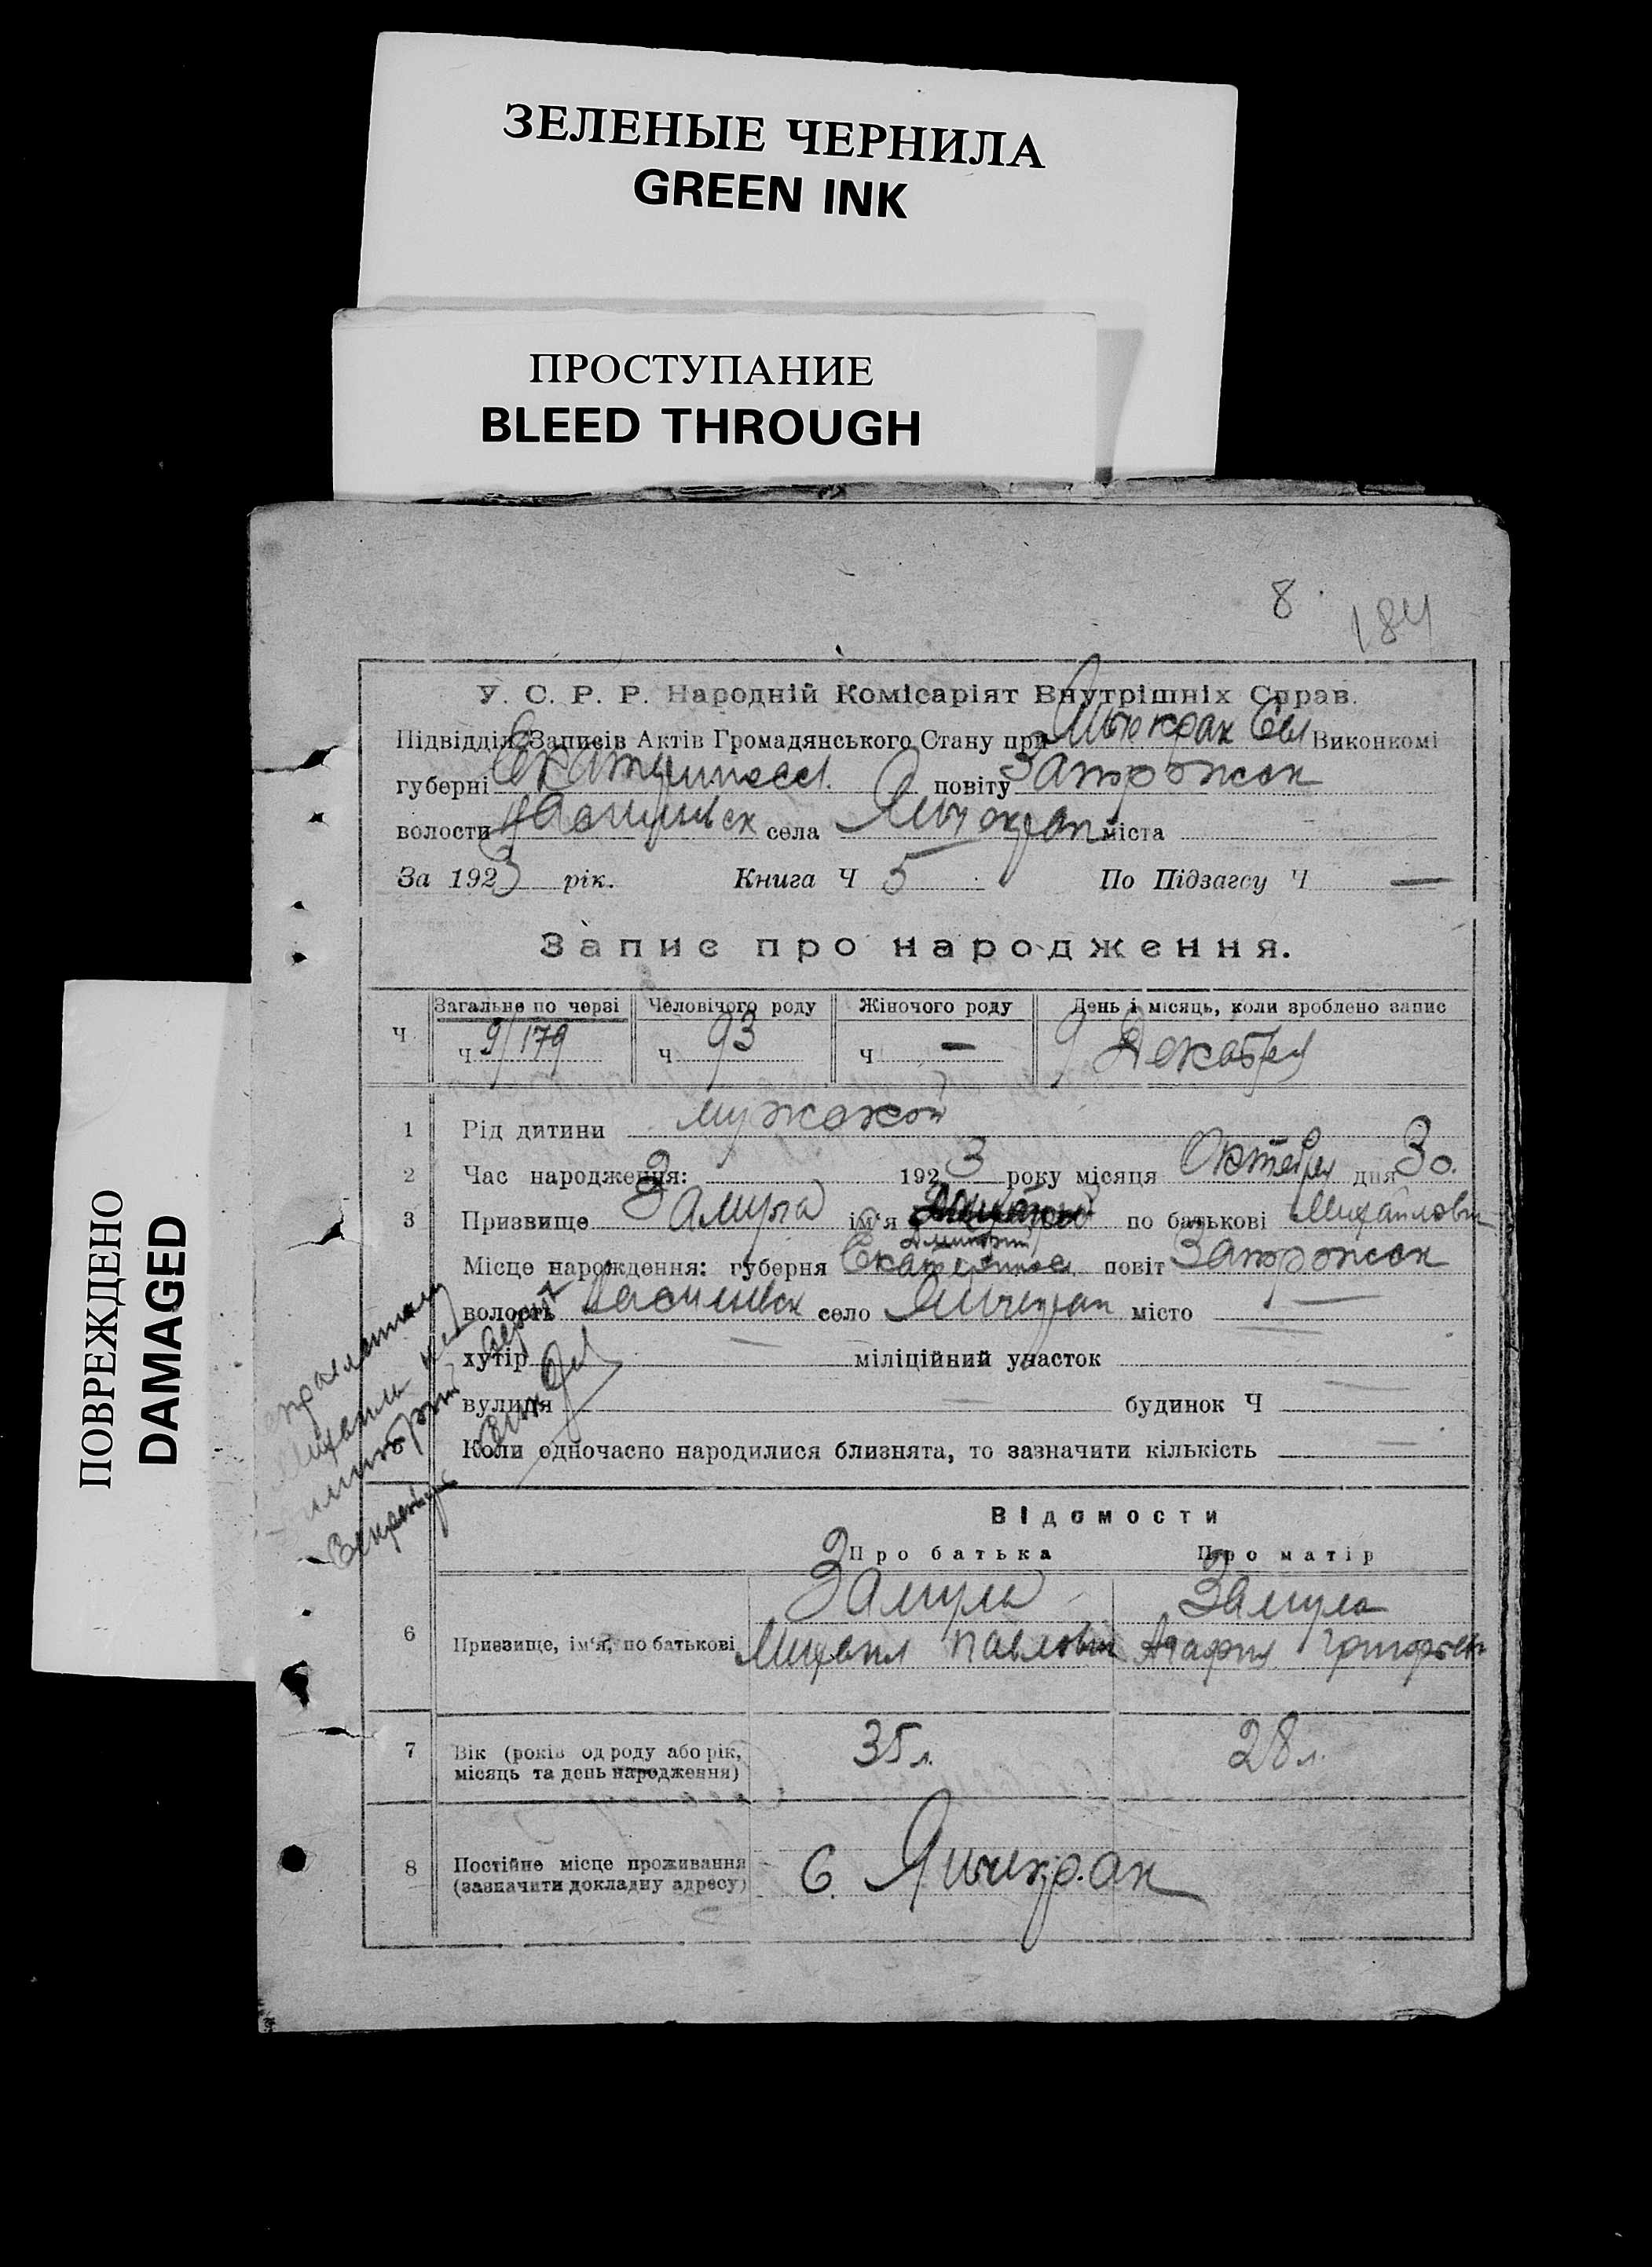 ЗЕЛЕНЫЕ ЧЕРНИЛА
GREEN INK
ПРОСТУПАНИЕ
BLEED THROUGH
ПОВРЕЖДЕНО
DAMAGED
8
184
У. С. Р. Р. Народній Комісаріят Внутрішніх Справ.
Підвідділ Записів Актів Громадянського Стану при Виконкомі
губерні повіту Запорожск
волости села міста
За 1923 рік. Книга Ч 5 По Підзагсу Ч —
Запис про народження.
Загальне по черзі Человічого роду Жіночого роду День і місяць, коли зроблено запис
Ч ч 9/179 ч 93 ч — 9 Декабря
1 Рід дитини мужской
2 Час народження: 1923 року місяця Октября дня 30.
3 Призвище Замула ім'я по батькові Михайлович
Дмитрий
Місце народження: губерня Екатеринос повіт Запорожск
волость село місто —
хутір — міліційний участок —
вулиця — будинок Ч —
Коли одночасно народилися близнята, то зазначити кількість —
Відомости
Про батька Про матір
Замула Замула
6 Призвище, ім'я, по батькові Михаил Павлович Агафия Григорьев
7 Вік (років од роду або рік, 35 л. 28 л.
місяць та день народження)
8 Постійне місце проживання С. Янчикрак
(зазначити докладну адресу)